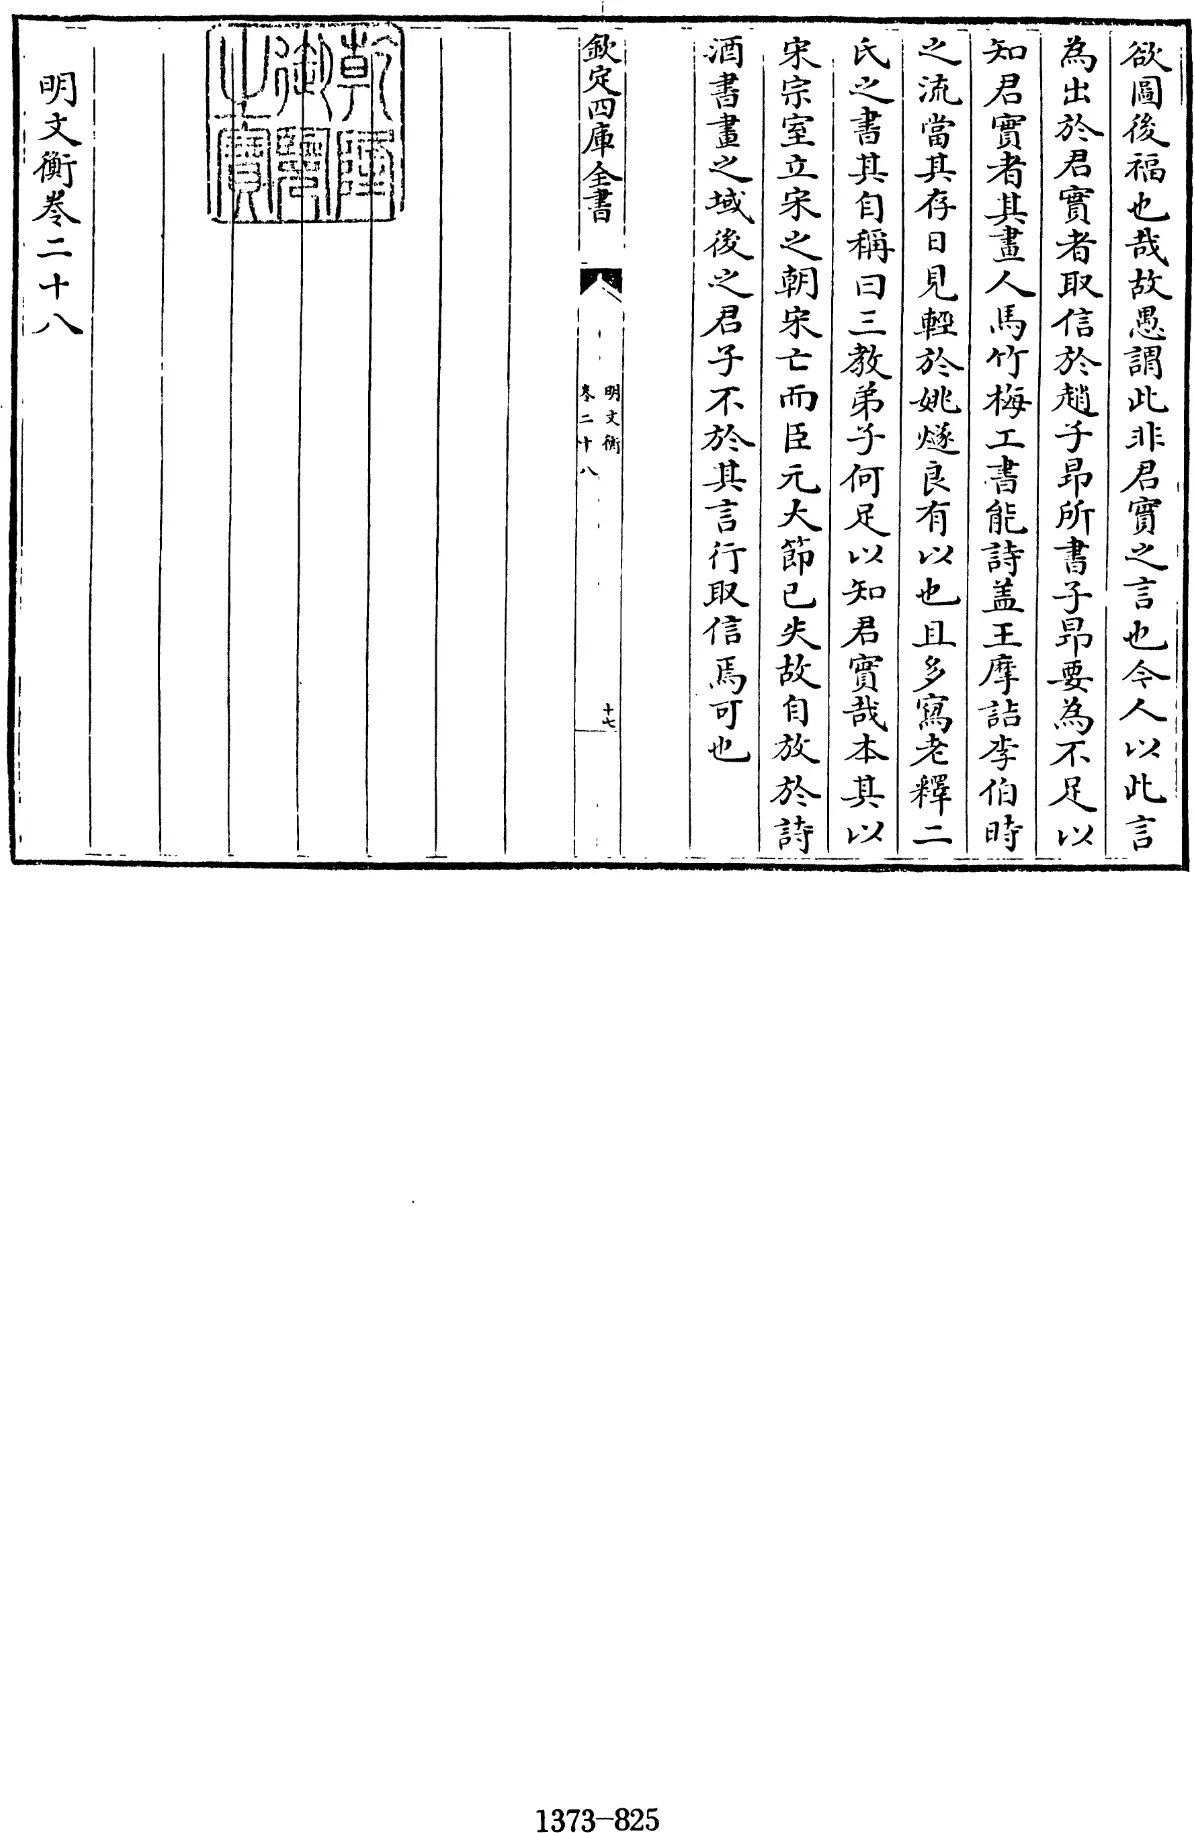 欲圖後福也哉故愚謂此非君實之言也今人以此言
為出於君實者取信於趙子昂所書子昂要為不足以
知君實者其畫人馬竹梅工書能詩盖王摩詰李伯時
之流當其存日見輕於姚燧良有以也且多寫老釋二
氏之書其自稱曰三教弟子何足以知君實哉本其以
宋宗室立宋之朝宋亡而臣元大節已失故自放於詩
酒書畫之域後之君子不於其言行取信焉可也
欽定四庫全書
明文衡
卷二十八
十七
乾隆
御覽
之寶
明文衡卷二十八
1373-825